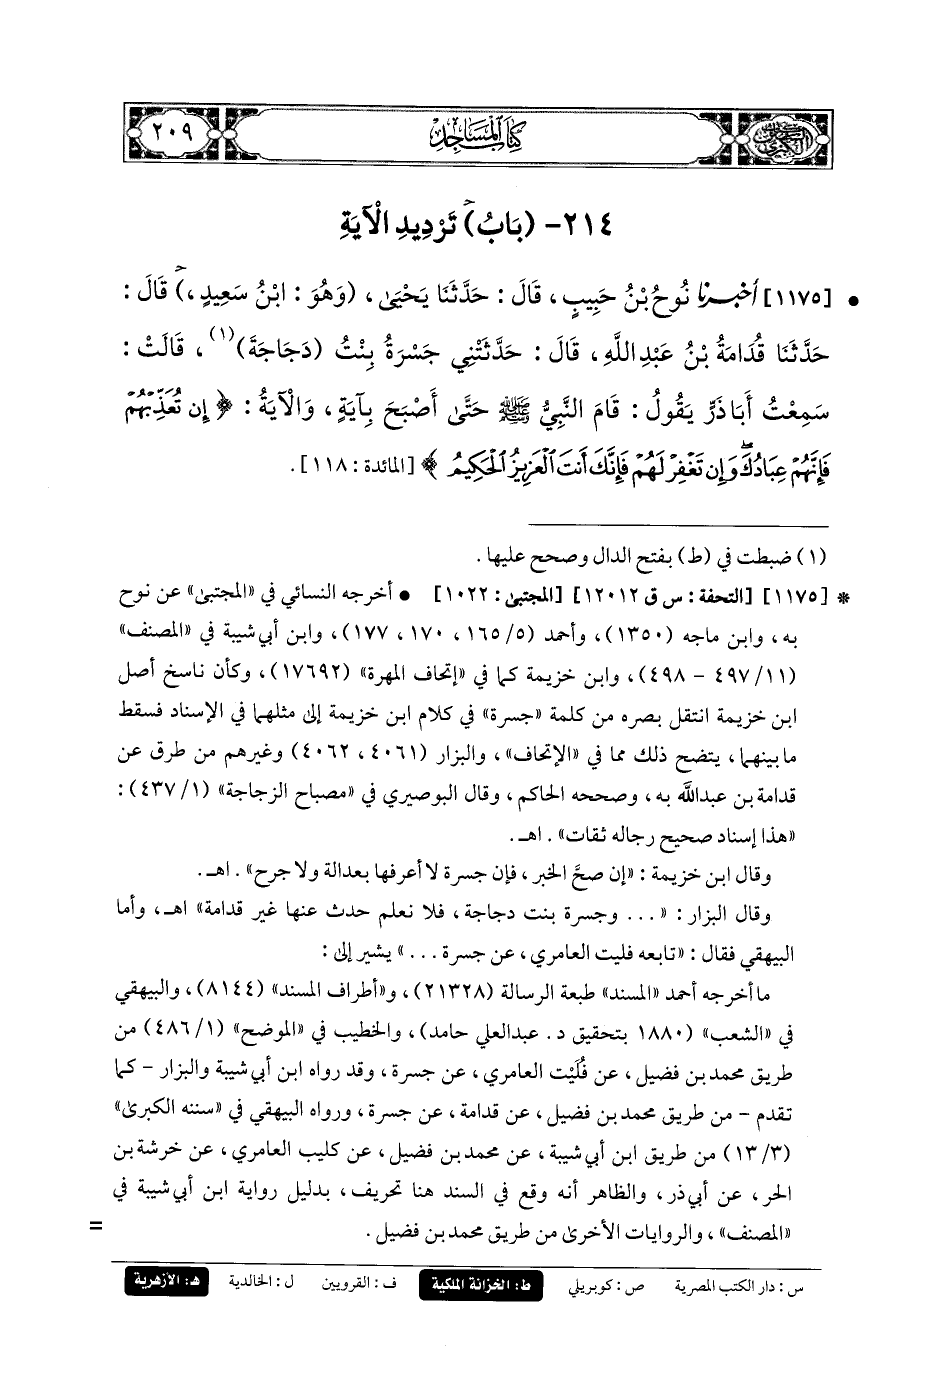 السنن الكبرى
كتاب المساجد
٢٠٩
٢١٤- (بَابُ) تَرْدِيدِ الْآيَةِ
• [١١٧٥] أخبرنا نُوحُ بْنُ حَبِيبٍ، قَالَ: حَدَّثَنَا يَحْيَى، (وَهُوَ: ابْنُ سَعِيدٍ،) قَالَ:
حَدَّثَنَا قُدَامَةُ بْنُ عَبْدِ اللَّهِ، قَالَ: حَدَّثَتْنِي جَسْرَةُ بِنْتُ (دَجَاجَةَ)(١)، قَالَتْ:
سَمِعْتُ أَبَا ذَرٍّ يَقُولُ: قَامَ النَّبِيُّ ﷺ حَتَّى أَصْبَحَ بِآيَةٍ، وَالْآيَةُ: ﴿إِن تُعَذِّبْهُمْ
فَإِنَّهُمْ عِبَادُكَ وَإِن تَغْفِرْ لَهُمْ فَإِنَّكَ أَنتَ ٱلْعَزِيزُ ٱلْحَكِيمُ﴾ [المائدة: ١١٨].
(١) ضبطت في (ط) بفتح الدال وصحح عليها.
* [١١٧٥] [التحفة: س ق ١٢٠١٢] [المجتبى: ١٠٢٢] • أخرجه النسائي في «المجتبى» عن نوح
به، وابن ماجه (١٣٥٠)، وأحمد (٥/ ١٦٥، ١٧٠، ١٧٧)، وابن أبي شيبة في «المصنف»
(١١/ ٤٩٧ - ٤٩٨)، وابن خزيمة كما في «إتحاف المهرة» (١٧٦٩٢)، وكأن ناسخ أصل
ابن خزيمة انتقل بصره من كلمة «جسرة» في كلام ابن خزيمة إلى مثلها في الإسناد فسقط
ما بينهما، يتضح ذلك مما في «الإتحاف»، والبزار (٤٠٦١، ٤٠٦٢) وغيرهم من طرق عن
قدامة بن عبدالله به، وصححه الحاكم، وقال البوصيري في «مصباح الزجاجة» (١/ ٤٣٧):
«هذا إسناد صحيح رجاله ثقات». اهـ.
وقال ابن خزيمة: «إن صحَّ الخبر، فإن جسرة لا أعرفها بعدالة ولا جرح». اهـ.
وقال البزار: «... وجسرة بنت دجاجة، فلا نعلم حدث عنها غير قدامة» اهـ، وأما
البيهقي فقال: «تابعه فليت العامري، عن جسرة ...» يشير إلى:
ما أخرجه أحمد «المسند» طبعة الرسالة (٢١٣٢٨)، و«أطراف المسند» (٨١٤٤)، والبيهقي
في «الشعب» (١٨٨٠ بتحقيق د. عبدالعلي حامد)، والخطيب في «الموضح» (١/ ٤٨٦) من
طريق محمد بن فضيل، عن فُلَيْت العامري، عن جسرة، وقد رواه ابن أبي شيبة والبزار - كما
تقدم - من طريق محمد بن فضيل، عن قدامة، عن جسرة، ورواه البيهقي في «سننه الكبرى»
(٣/ ١٣) من طريق ابن أبي شيبة، عن محمد بن فضيل، عن كليب العامري، عن خرشة بن
الحر، عن أبي ذر، والظاهر أنه وقع في السند هنا تحريف، بدليل رواية ابن أبي شيبة في
«المصنف»، والروايات الأخرى من طريق محمد بن فضيل.
=
س: دار الكتب المصرية ص: كوبريلي ط: الخزانة الملكية ف: القرويين ل: الخالدية هـ: الأزهرية